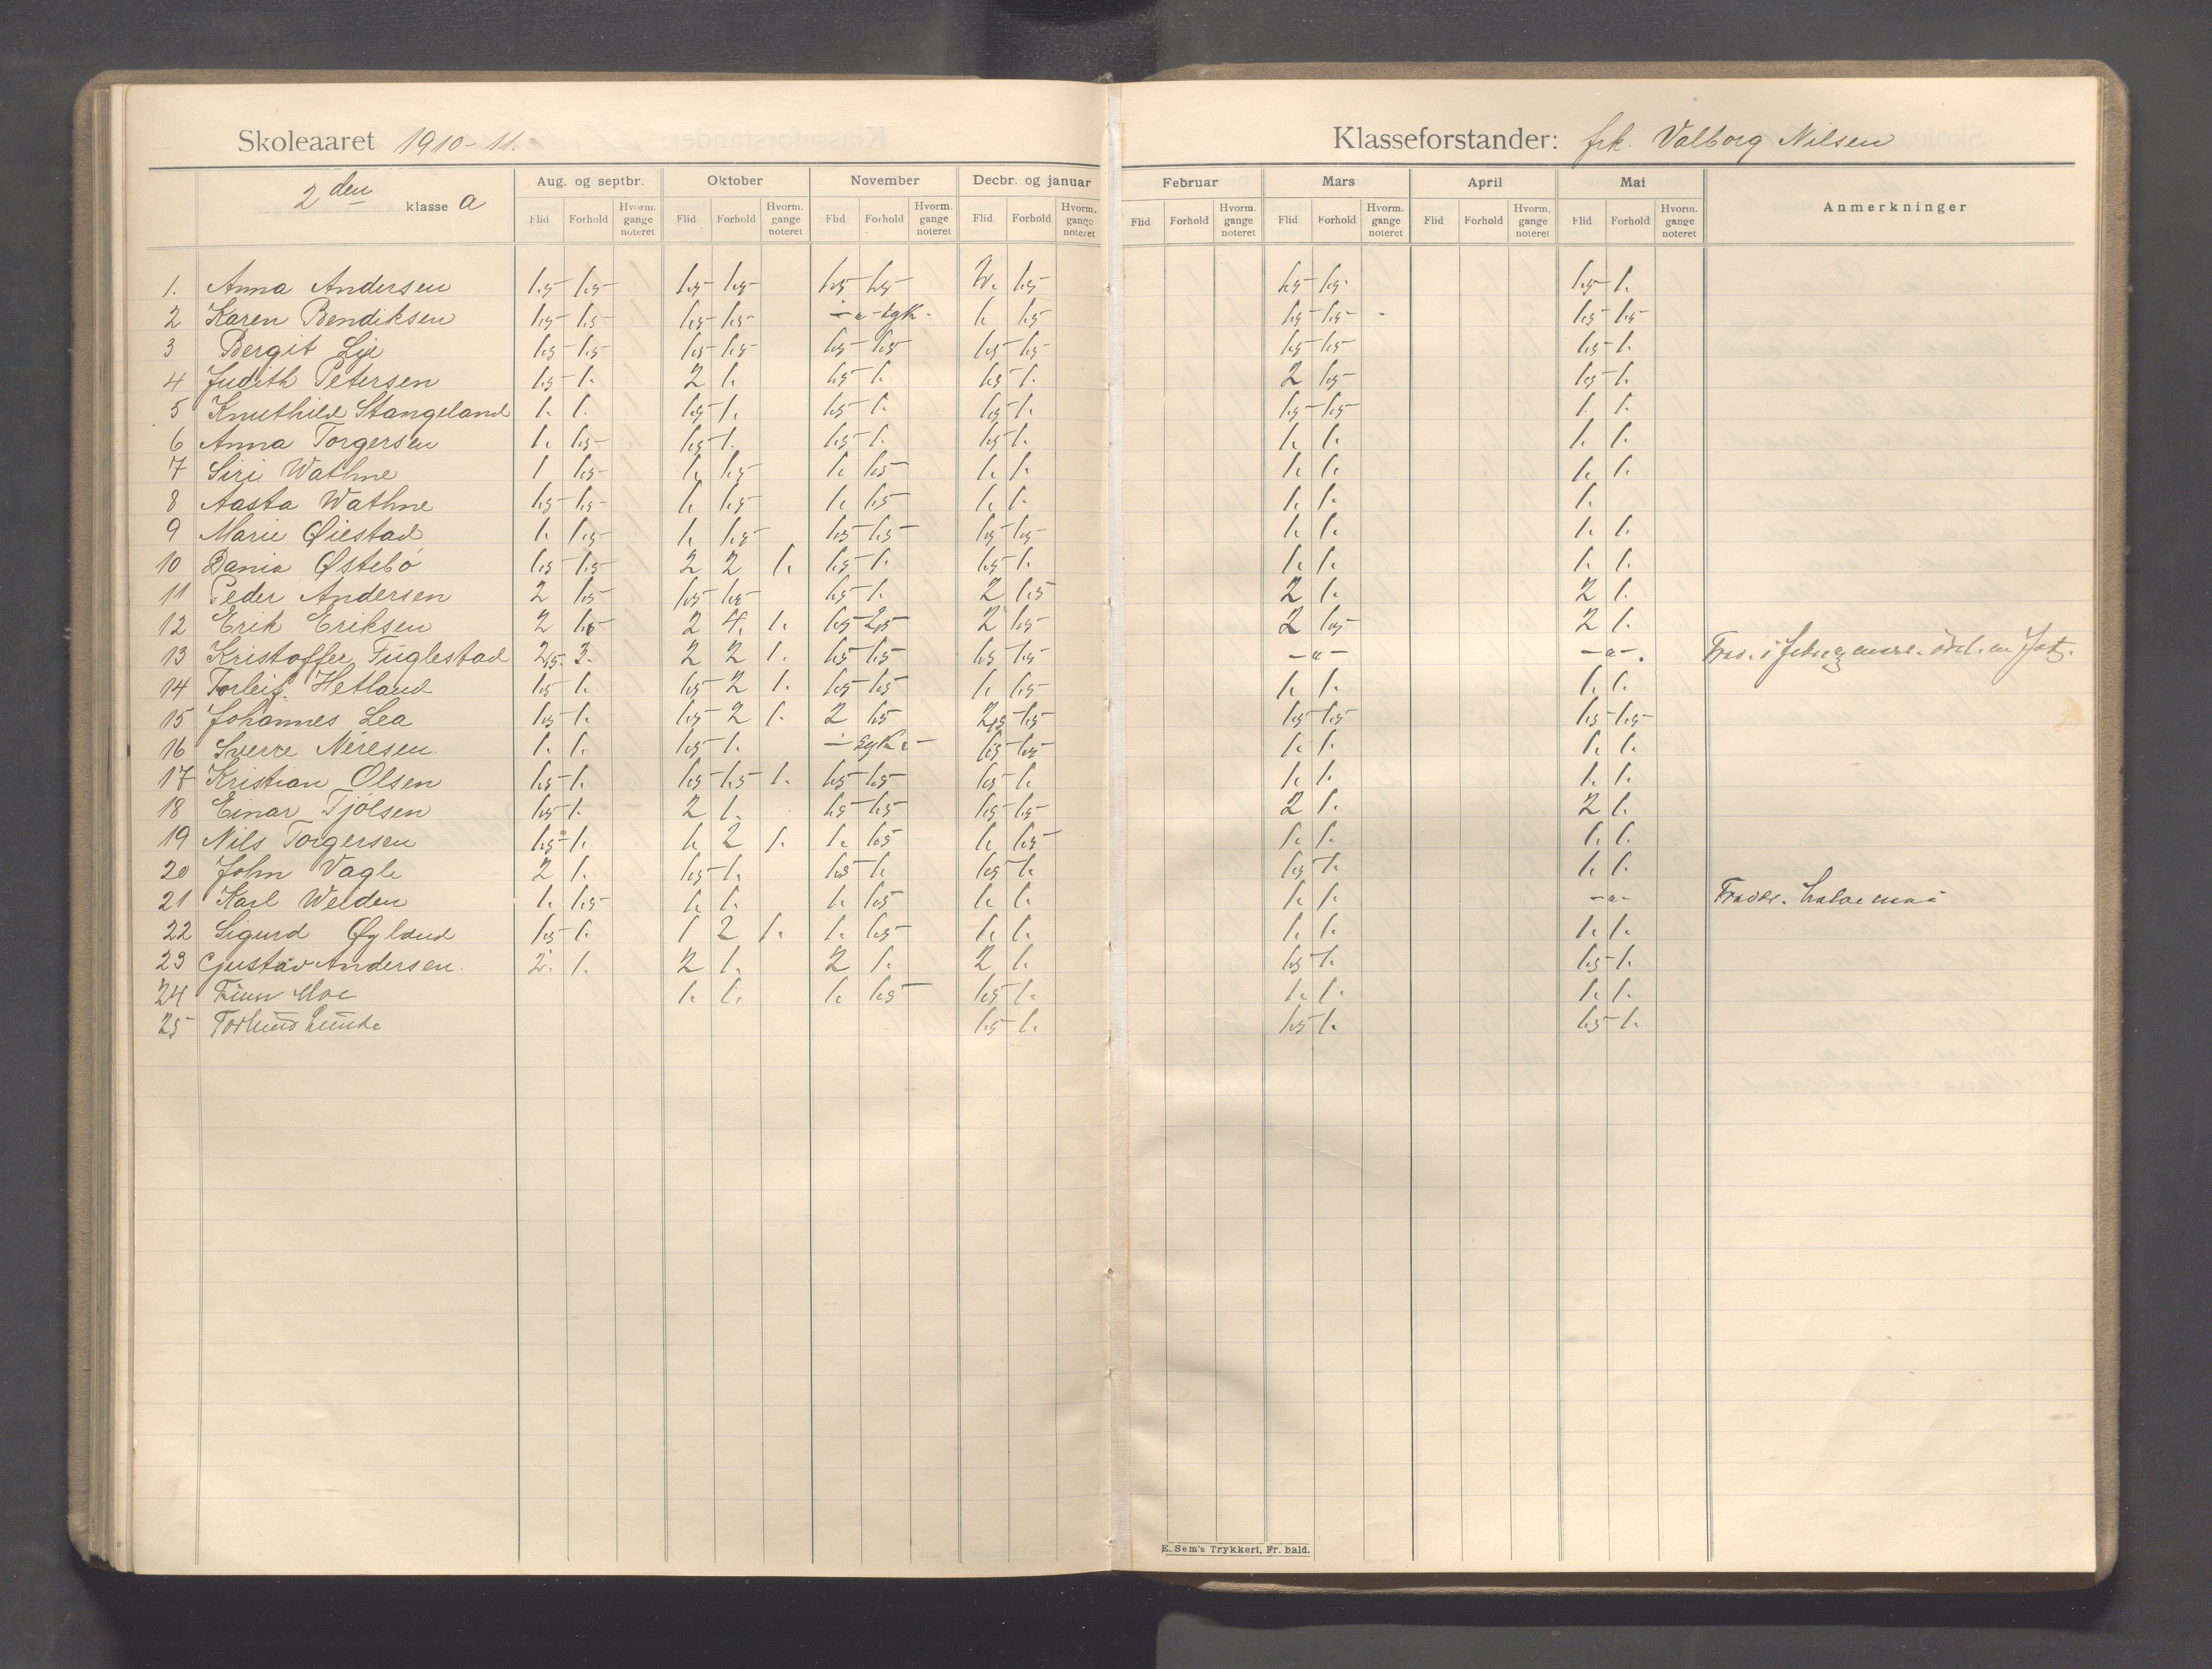 Skoleaaret 1910-11.
Klasseforstander: frk. Valborg Nilsen
2den klasse a
Aug. og septbr. Oktober November Decbr. og januar Februar Mars April Mai Anmerkninger
Flid Forhold Hvorm. gange noteret Flid Forhold Hvorm. gange noteret Flid Forhold Hvorm. gange noteret Flid Forhold Hvorm. gange noteret Flid Forhold Hvorm. gange noteret Flid Forhold Hvorm. gange noteret Flid Forhold Hvorm. gange noteret Flid Forhold Hvorm. gange noteret
1. Anna Andersen 1.5 1.5 1.5 1.5 1.5 1.5 2. 1.5 1.5 1.5 1.5 1.
2 Karen Bendiksen 1.5 1.5 1.5 1.5 syk. 1. 1.5 1.5 1.5 1.5 1.5
3 Bergit Lye 1.5 1.5 1.5 1.5 1.5 1.5 1.5 1.5 1.5 1.5 1.5 1.
4 Judith Petersen 1.5 1. 2 1. 1.5 1. 1.5 1. 2 1.5 1.5 1.
5 Knuthild Stangeland 1. 1. 1.5 1. 1.5 1. 1.5 1. 1.5 1.5 1. 1.
6 Anna Torgersen 1. 1.5 1.5 1. 1.5 1. 1.5 1. 1. 1. 1. 1.
7 Siri Wathne 1 1.5 1. 1.5 1. 1.5 1. 1. 1. 1. 1. 1.
8 Aasta Wathne 1.5 1.5 1. 1.5 1. 1.5 1. 1. 1. 1. 1.
9 Marie Øiestad 1. 1.5 1. 1.5 1.5 1.5 1.5 1.5 1. 1. 1. 1.
10 Dania Østebø 1.5 1.5 2 2 1. 1.5 1. 1.5 1. 1. 1. 1. 1.
11 Peder Andersen 2 1.5 1.5 1.5 1.5 1. 2 1.5 2 1. 2 1.
12 Erik Eriksen 2 1.5 2 4. 1. 1.5 2.5 2 1.5 2 1.5 2 1.
13 Kristoffer Fuglestad 2.5. 3. 2 2 1. 1.5 1.5 1.5 1.5 - " - - " -
14 Torleif Hetland 1.5 1. 1.5 2 1. 1.5 1.5 1. 1.5 1. 1. 1. 1.
15 Johannes Lea 1.5 1. 1.5 2 1. 2 1.5 2.5 1.5 1.5 1.5 1.5 1.5
16 Sverre Neresen. 1. 1. 1.5 1. syk 1.5 1.5 1. 1. 1. 1.
17 Kristian Olsen 1.5 1. 1.5 1.5 1. 1.5 1.5 1.5 1. 1. 1. 1. 1.
18 Einar Tjølsen 1.5 1. 2 1. 1.5 1.5 1.5 1.5 2 1. 2 1.
19 Nils Torgersen 1.5 1. 1. 2 1. 1. 1.5 1. 1.5 1. 1. 1. 1.
20 John Vagle 2 1. 1.5 1. 1.5 1. 1.5 1. 1.5 1. 1. 1.
21 Karl Welden 1. 1.5 1. 1. 1. 1.5 1. 1. 1. 1. - " -
22 Sigurd Øglænd 1.5 1. 1 2 1. 1. 1.5 1. 1. 1. 1. 1. 1.
23 Gustav Andersen. 2. 1. 2 1. 2 1. 2 1. 1.5 1. 1.5 1.
24 Finn Moe 1. 1. 1. 1.5 1.5 1. 1. 1. 1. 1.
25 Lunde 1.5 1. 1.5 1. 1.5 1.
E. Sem's Trykkeri, Fr. hald.